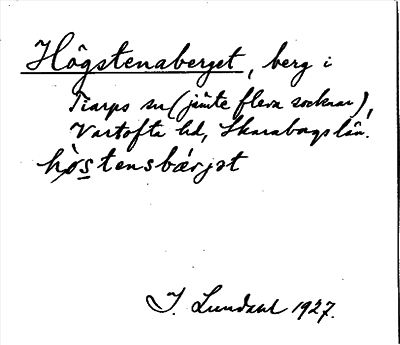 Högstenaberget, berg i
Tiarps sn (jämte flera socknar),
Vartofta hd, Skaraborgs län.
hò̷s̲tensbǽrjət
J. Lundahl 1927.